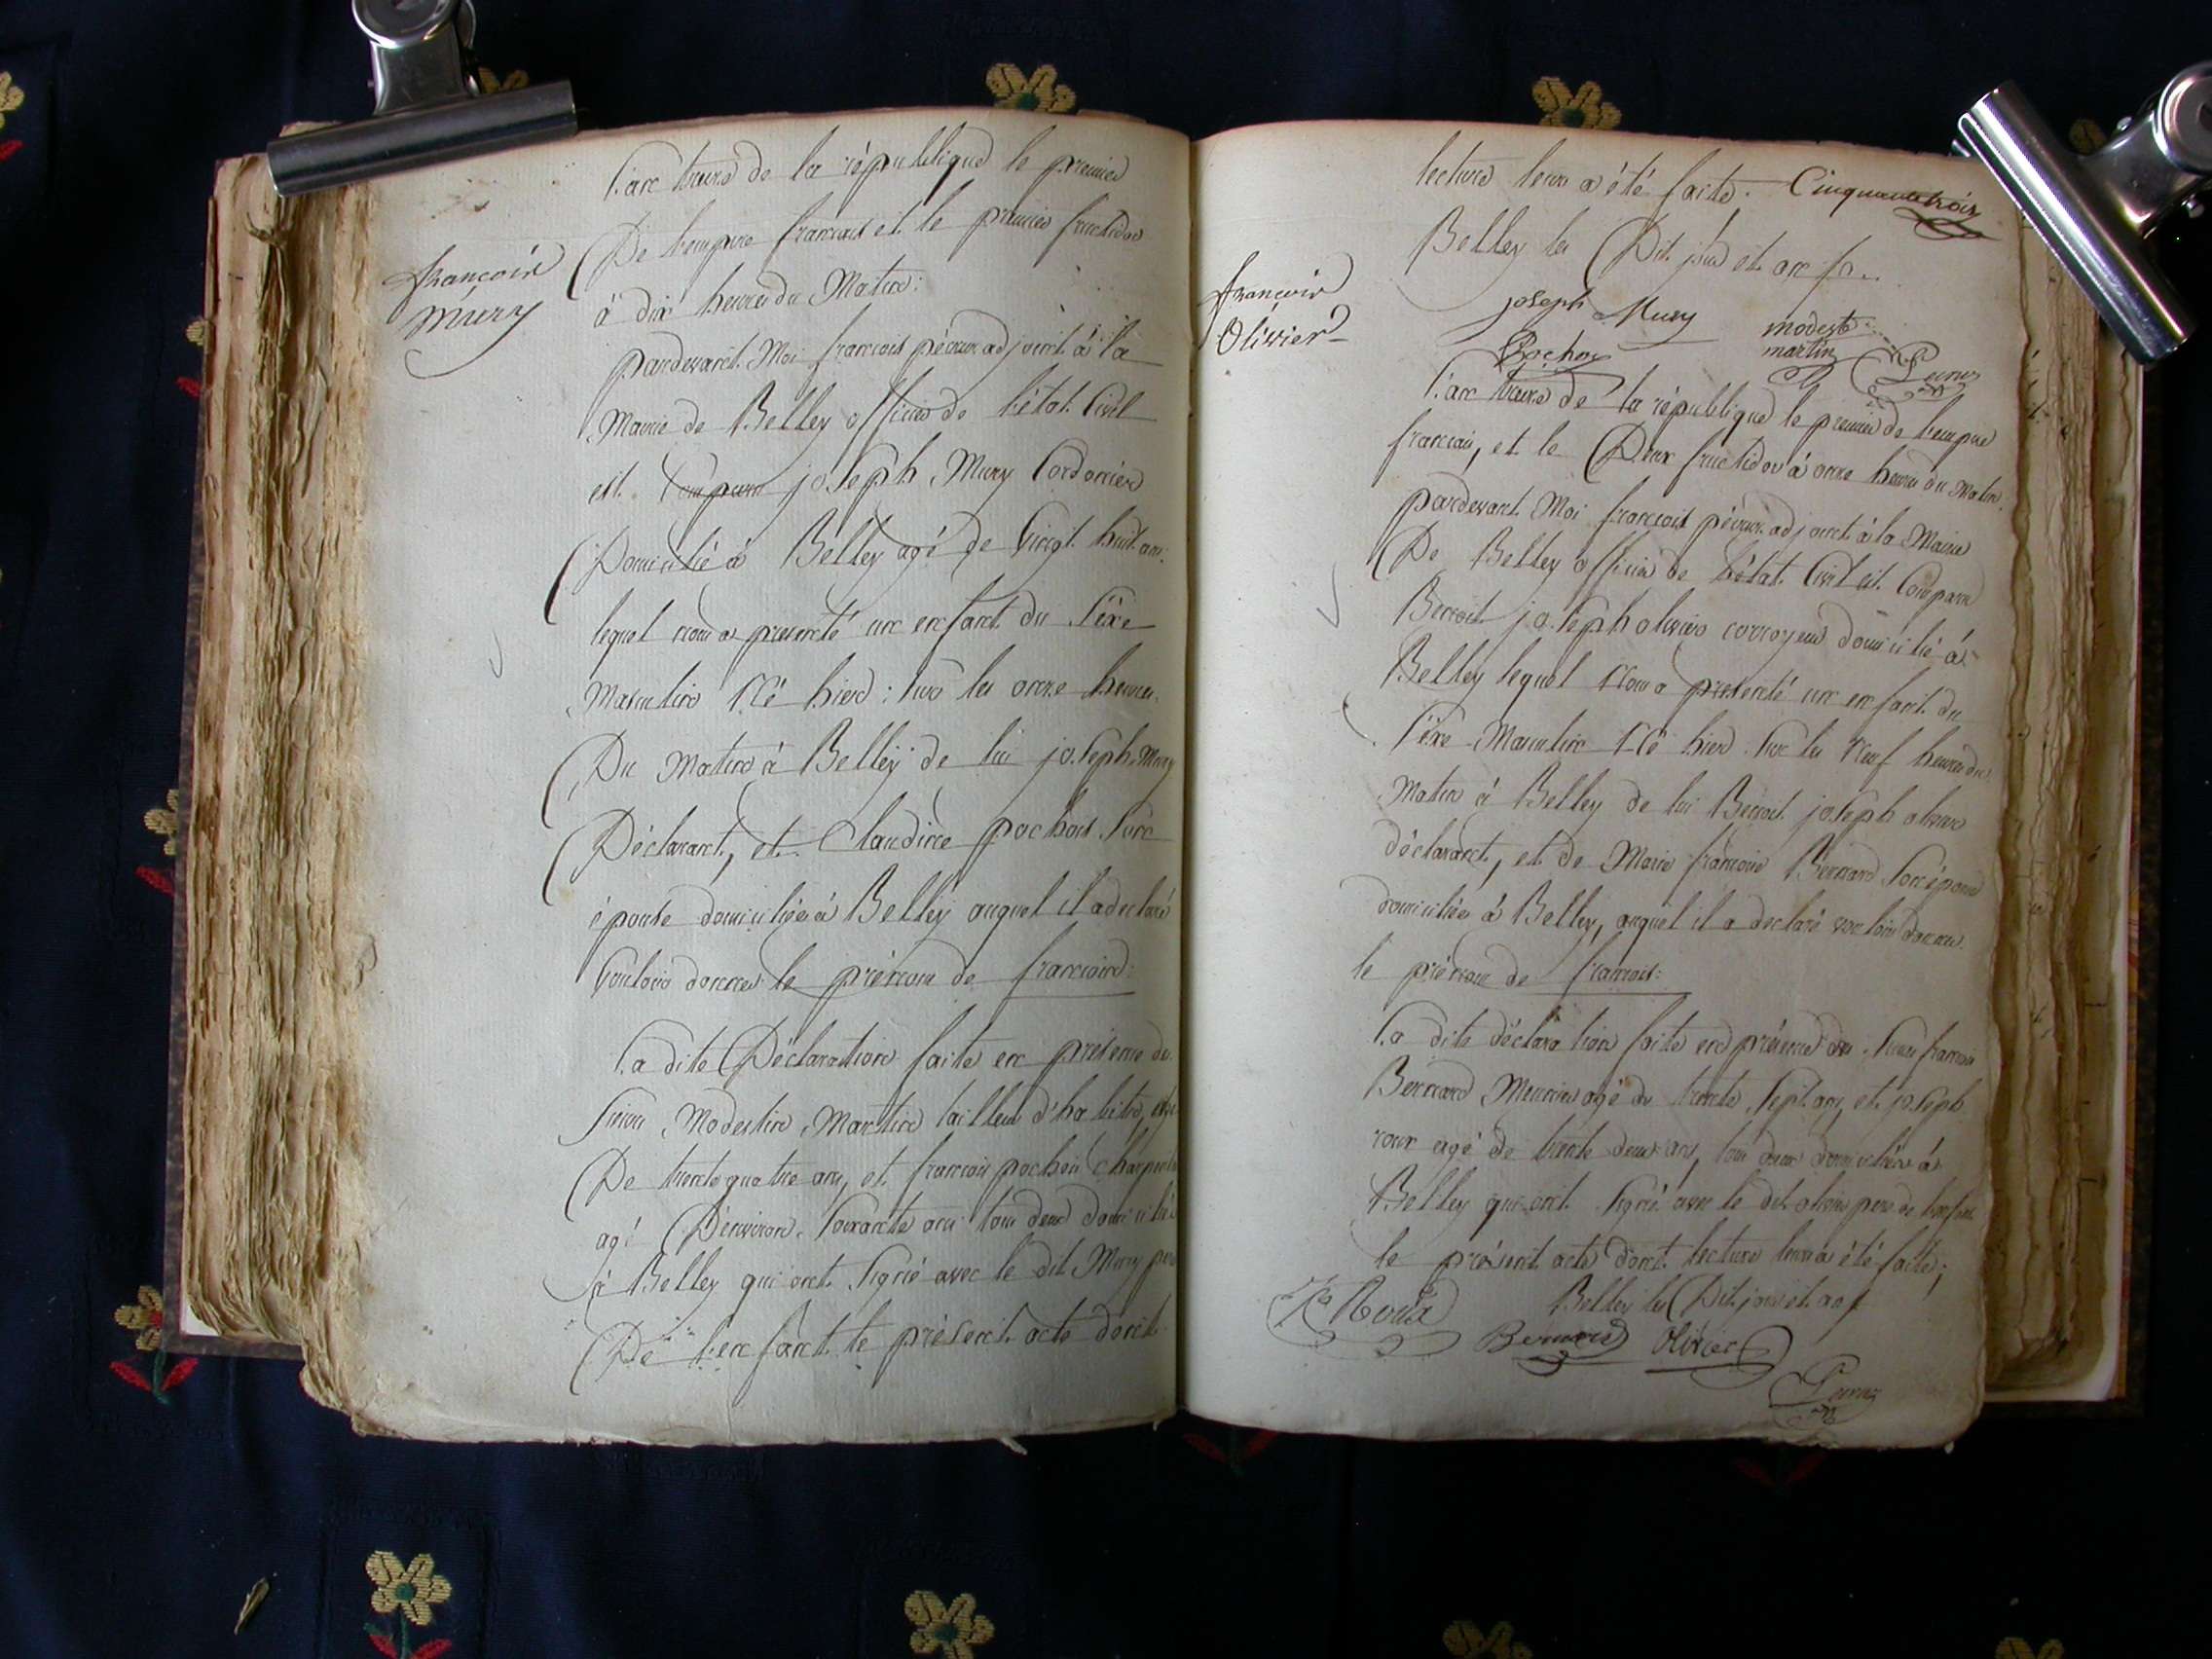 françois
mury
l'an treize de la république le premier
De l'empire francais et le premier fructidor
à dix heures du Matin:
pardevant Moi francois péroux adjoint à la
Mairie de Belley officier de l'état Civil
est Comparu joseph Mury Cordonnier
Domicilié à Belley agé de Vingt huit ans:
lequel nous a presenté un enfant du Sexe
Masculin Né hier: sur les onze heures
Du Matin à Belley de lui joseph Mury
Déclarant, et Claudine pochois Son
épouse domiciliée à Belley auquel il a declaré
Vouloir donner le prénom de francois:
la dite Déclaration faite en présence de
Modestin Martin tailleur d'habits, agé
De trente quatre ans, et francois pochois
agé D'environ Soixante ans tous deux domiciliés
à Belley qui ont Signé avec le dit Mury père
De l'enfant le présent acte dont
lecture leur a été faite. Cinquante trois
Belley les Dit jour et an
joseph Mury modeste
Pochoy martin
françois
Olivier
l'an treize de la république le premier de l'empire
francais, et le Deux fructidor à onze heures du Matin.
pardevant Moi francois péroux adjoint à la Mairie
De Belley officier de l'état Civil est Comparu
Benoit joseph olivier corroyeur domicilié à
Belley lequel Nous a presenté un enfant du
Sexe Masculin Né hier Sur les Neuf heures du
Matin à Belley de lui Benoit joseph olivier
déclarant, et de Marie francoise Bernard Son épouse
domiciliée à Belley, auquel il a declaré vouloir donner
le prénom de francois:
la dite déclaration faite en présence de francois
Bernard agé de trente Sept ans, et joseph
roux agé de trente deux ans, tous deux domiciliés à
Belley qui ont Signé avec le dit olivier pere de l'enfant
le présent acte dont lecture leur a été faite;
Belley les Dit jour et an
Bernard Olivier